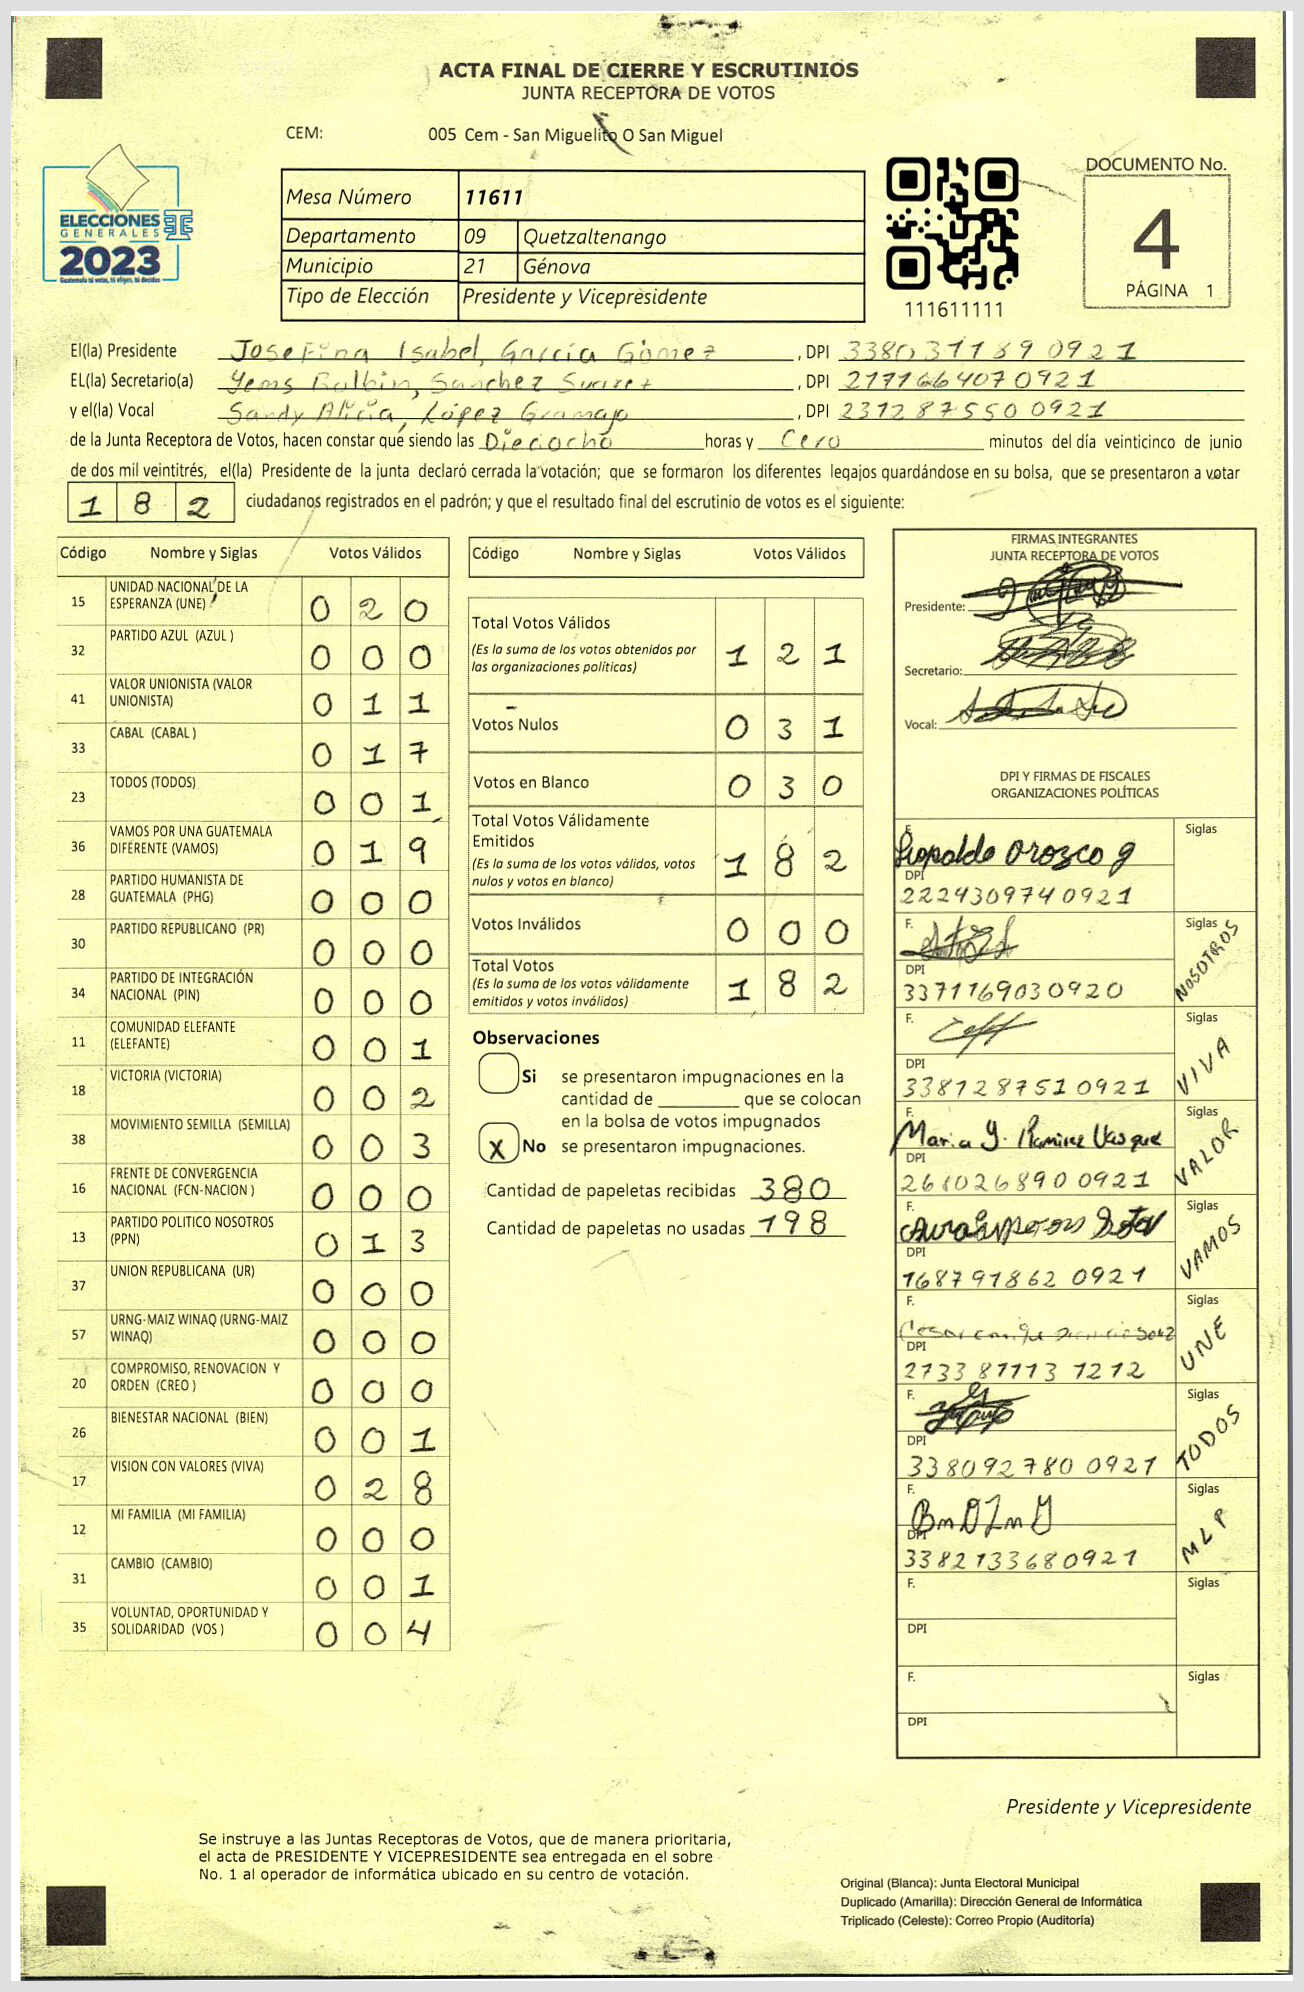 ACTA FINAL DE CIERRE Y ESCRUTINIOS
JUNTA RECEPTORA DE VOTOS
CEM: 005 Cem - San Miguelito O San Miguel
ELECCIONES
GENERALES
2023
Guatemala tú votas, tú eliges, tú decides
Mesa Número 11611
Departamento 09 Quetzaltenango
Municipio 21 Génova
Tipo de Elección Presidente y Vicepresidente
111611111
DOCUMENTO No.
4
PÁGINA 1
El(la) Presidente Josefina Isabel, García Gómez, DPI 338031189 0921
EL(la) Secretario(a) Sanchez, DPI 217166407 0921
y el(la) Vocal Sandy Alicia, López Gramajo, DPI 231287550 0921
de la Junta Receptora de Votos, hacen constar que siendo las Dieciocho horas y Cero minutos del día veinticinco de junio
de dos mil veintitrés, el(la) Presidente de la junta declaró cerrada la votación; que se formaron los diferentes legajos guardándose en su bolsa, que se presentaron a votar
182 ciudadanos registrados en el padrón; y que el resultado final del escrutinio de votos es el siguiente:
Código Nombre y Siglas Votos Válidos
15 UNIDAD NACIONAL DE LA ESPERANZA (UNE) 0 2 0
32 PARTIDO AZUL (AZUL ) 0 0 0
41 VALOR UNIONISTA (VALOR UNIONISTA) 0 1 1
33 CABAL (CABAL ) 0 1 7
23 TODOS (TODOS) 0 0 1
36 VAMOS POR UNA GUATEMALA DIFERENTE (VAMOS) 0 1 9
28 PARTIDO HUMANISTA DE GUATEMALA (PHG) 0 0 0
30 PARTIDO REPUBLICANO (PR) 0 0 0
34 PARTIDO DE INTEGRACIÓN NACIONAL (PIN) 0 0 0
11 COMUNIDAD ELEFANTE (ELEFANTE) 0 0 1
18 VICTORIA (VICTORIA) 0 0 2
38 MOVIMIENTO SEMILLA (SEMILLA) 0 0 3
16 FRENTE DE CONVERGENCIA NACIONAL (FCN-NACION ) 0 0 0
13 PARTIDO POLITICO NOSOTROS (PPN) 0 1 3
37 UNION REPUBLICANA (UR) 0 0 0
57 URNG-MAIZ WINAQ (URNG-MAIZ WINAQ) 0 0 0
20 COMPROMISO, RENOVACION Y ORDEN (CREO ) 0 0 0
26 BIENESTAR NACIONAL (BIEN) 0 0 1
17 VISION CON VALORES (VIVA) 0 2 8
12 MI FAMILIA (MI FAMILIA) 0 0 0
31 CAMBIO (CAMBIO) 0 0 1
35 VOLUNTAD, OPORTUNIDAD Y SOLIDARIDAD (VOS ) 0 0 4
Código Nombre y Siglas Votos Válidos
Total Votos Válidos 1 2 1
(Es la suma de los votos obtenidos por
las organizaciones políticas)
Votos Nulos 0 3 1
Votos en Blanco 0 3 0
Total Votos Válidamente
Emitidos 1 8 2
(Es la suma de los votos válidos, votos
nulos y votos en blanco)
Votos Inválidos 0 0 0
Total Votos 1 8 2
(Es la suma de los votos válidamente
emitidos y votos inválidos)
Observaciones
Si se presentaron impugnaciones en la
cantidad de ________ que se colocan
en la bolsa de votos impugnados
X No se presentaron impugnaciones.
Cantidad de papeletas recibidas 380
Cantidad de papeletas no usadas 198
FIRMAS INTEGRANTES
JUNTA RECEPTORA DE VOTOS
Presidente:
Secretario:
Vocal:
DPI Y FIRMAS DE FISCALES
ORGANIZACIONES POLÍTICAS
F. Leopoldo Orozco g Siglas
DPI
222430974 0921
F. Siglas NOSOTROS
DPI
337116903 0920
F. Siglas VIVA
DPI
338128751 0921
F. Maria Y. Ramirez Vasquez Siglas VALOR
DPI
261026890 0921
F. Siglas VAMOS
DPI
168791862 0921
F. Siglas UNE
DPI
2733 87713 1212
F. Siglas TODOS
DPI
338092780 0921
F. Siglas MLP
DPI
338213368 0921
F. Siglas
DPI
F. Siglas
DPI
Presidente y Vicepresidente
Se instruye a las Juntas Receptoras de Votos, que de manera prioritaria,
el acta de PRESIDENTE Y VICEPRESIDENTE sea entregada en el sobre
No. 1 al operador de informática ubicado en su centro de votación.
Original (Blanca): Junta Electoral Municipal
Duplicado (Amarilla): Dirección General de Informática
Triplicado (Celeste): Correo Propio (Auditoría)